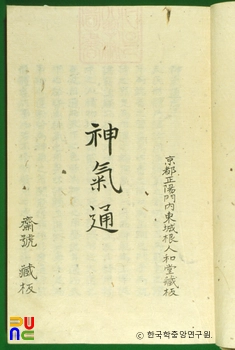 京都正陽門內東城根人和堂藏板
神氣通
齋號 藏板
PUNC
ⓒ 한국학중앙연구원.